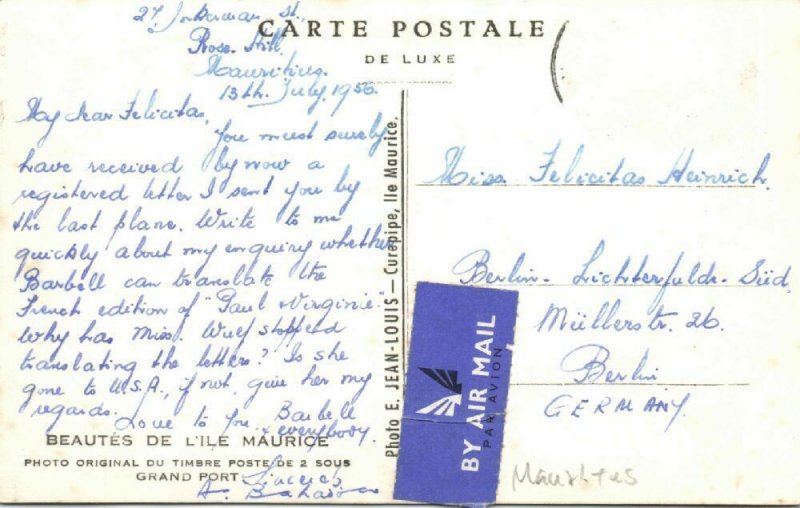 CARTE POSTALE
DE LUXE
27, St.,
Rose Hill.
Mauritius.
13th. July, 1956.
My dear Felicitas,
You must surely
have received by now a
registered letter I sent you by
the last plane. Write to me
quickly about my enquiry whether
Barbell can translate the
French edition of "Paul & Virginie".
Why has Miss. Wulf stopped
translating the letters? Is she
gone to U.S.A., if not, give her my
regards.
Love to you, Barbell
& everybody
Sincerely
A.
BEAUTÉS DE L'ILE MAURICE
PHOTO ORIGINAL DU TIMBRE POSTE DE 2 SOUS
GRAND PORT
Photo E. JEAN-LOUIS — Curepipe, Ile Maurice.
Miss. Felicitas Heinrich.
Berlin - Lichterfelde - Süd,
Müllerstr. 26.
Berlin
GERMANY.
BY AIR MAIL
PAR AVION